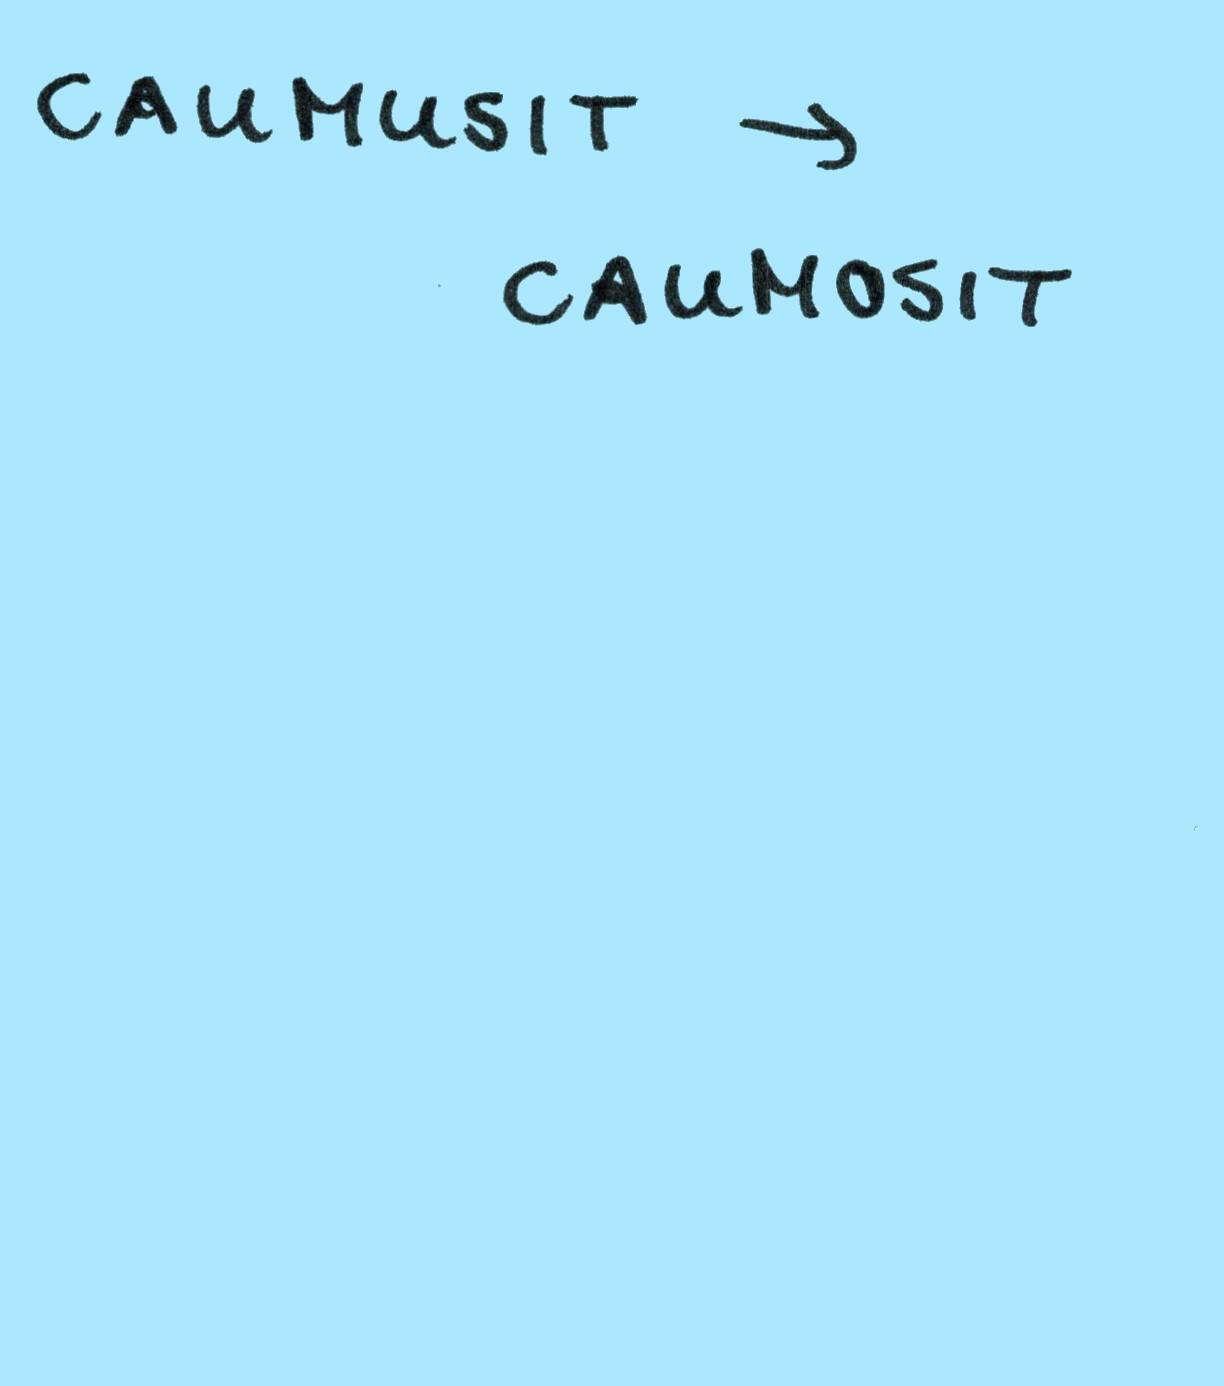 CAUMUSIT →
CAUMOSIT